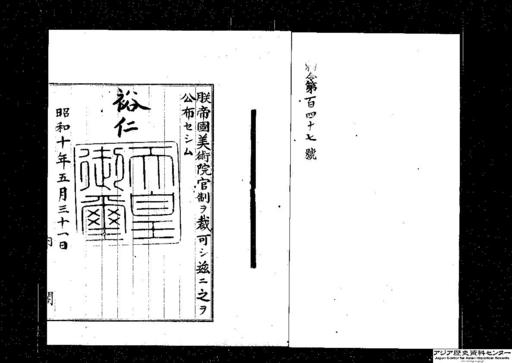 令第百四十七號
朕帝國美術院官制ヲ裁可シ玆ニ之ヲ
公布セシム
裕仁
天皇
御璽
昭和十年五月三十一日
閣
アジア歴史資料センター
Japan Center for Asian Historical Records